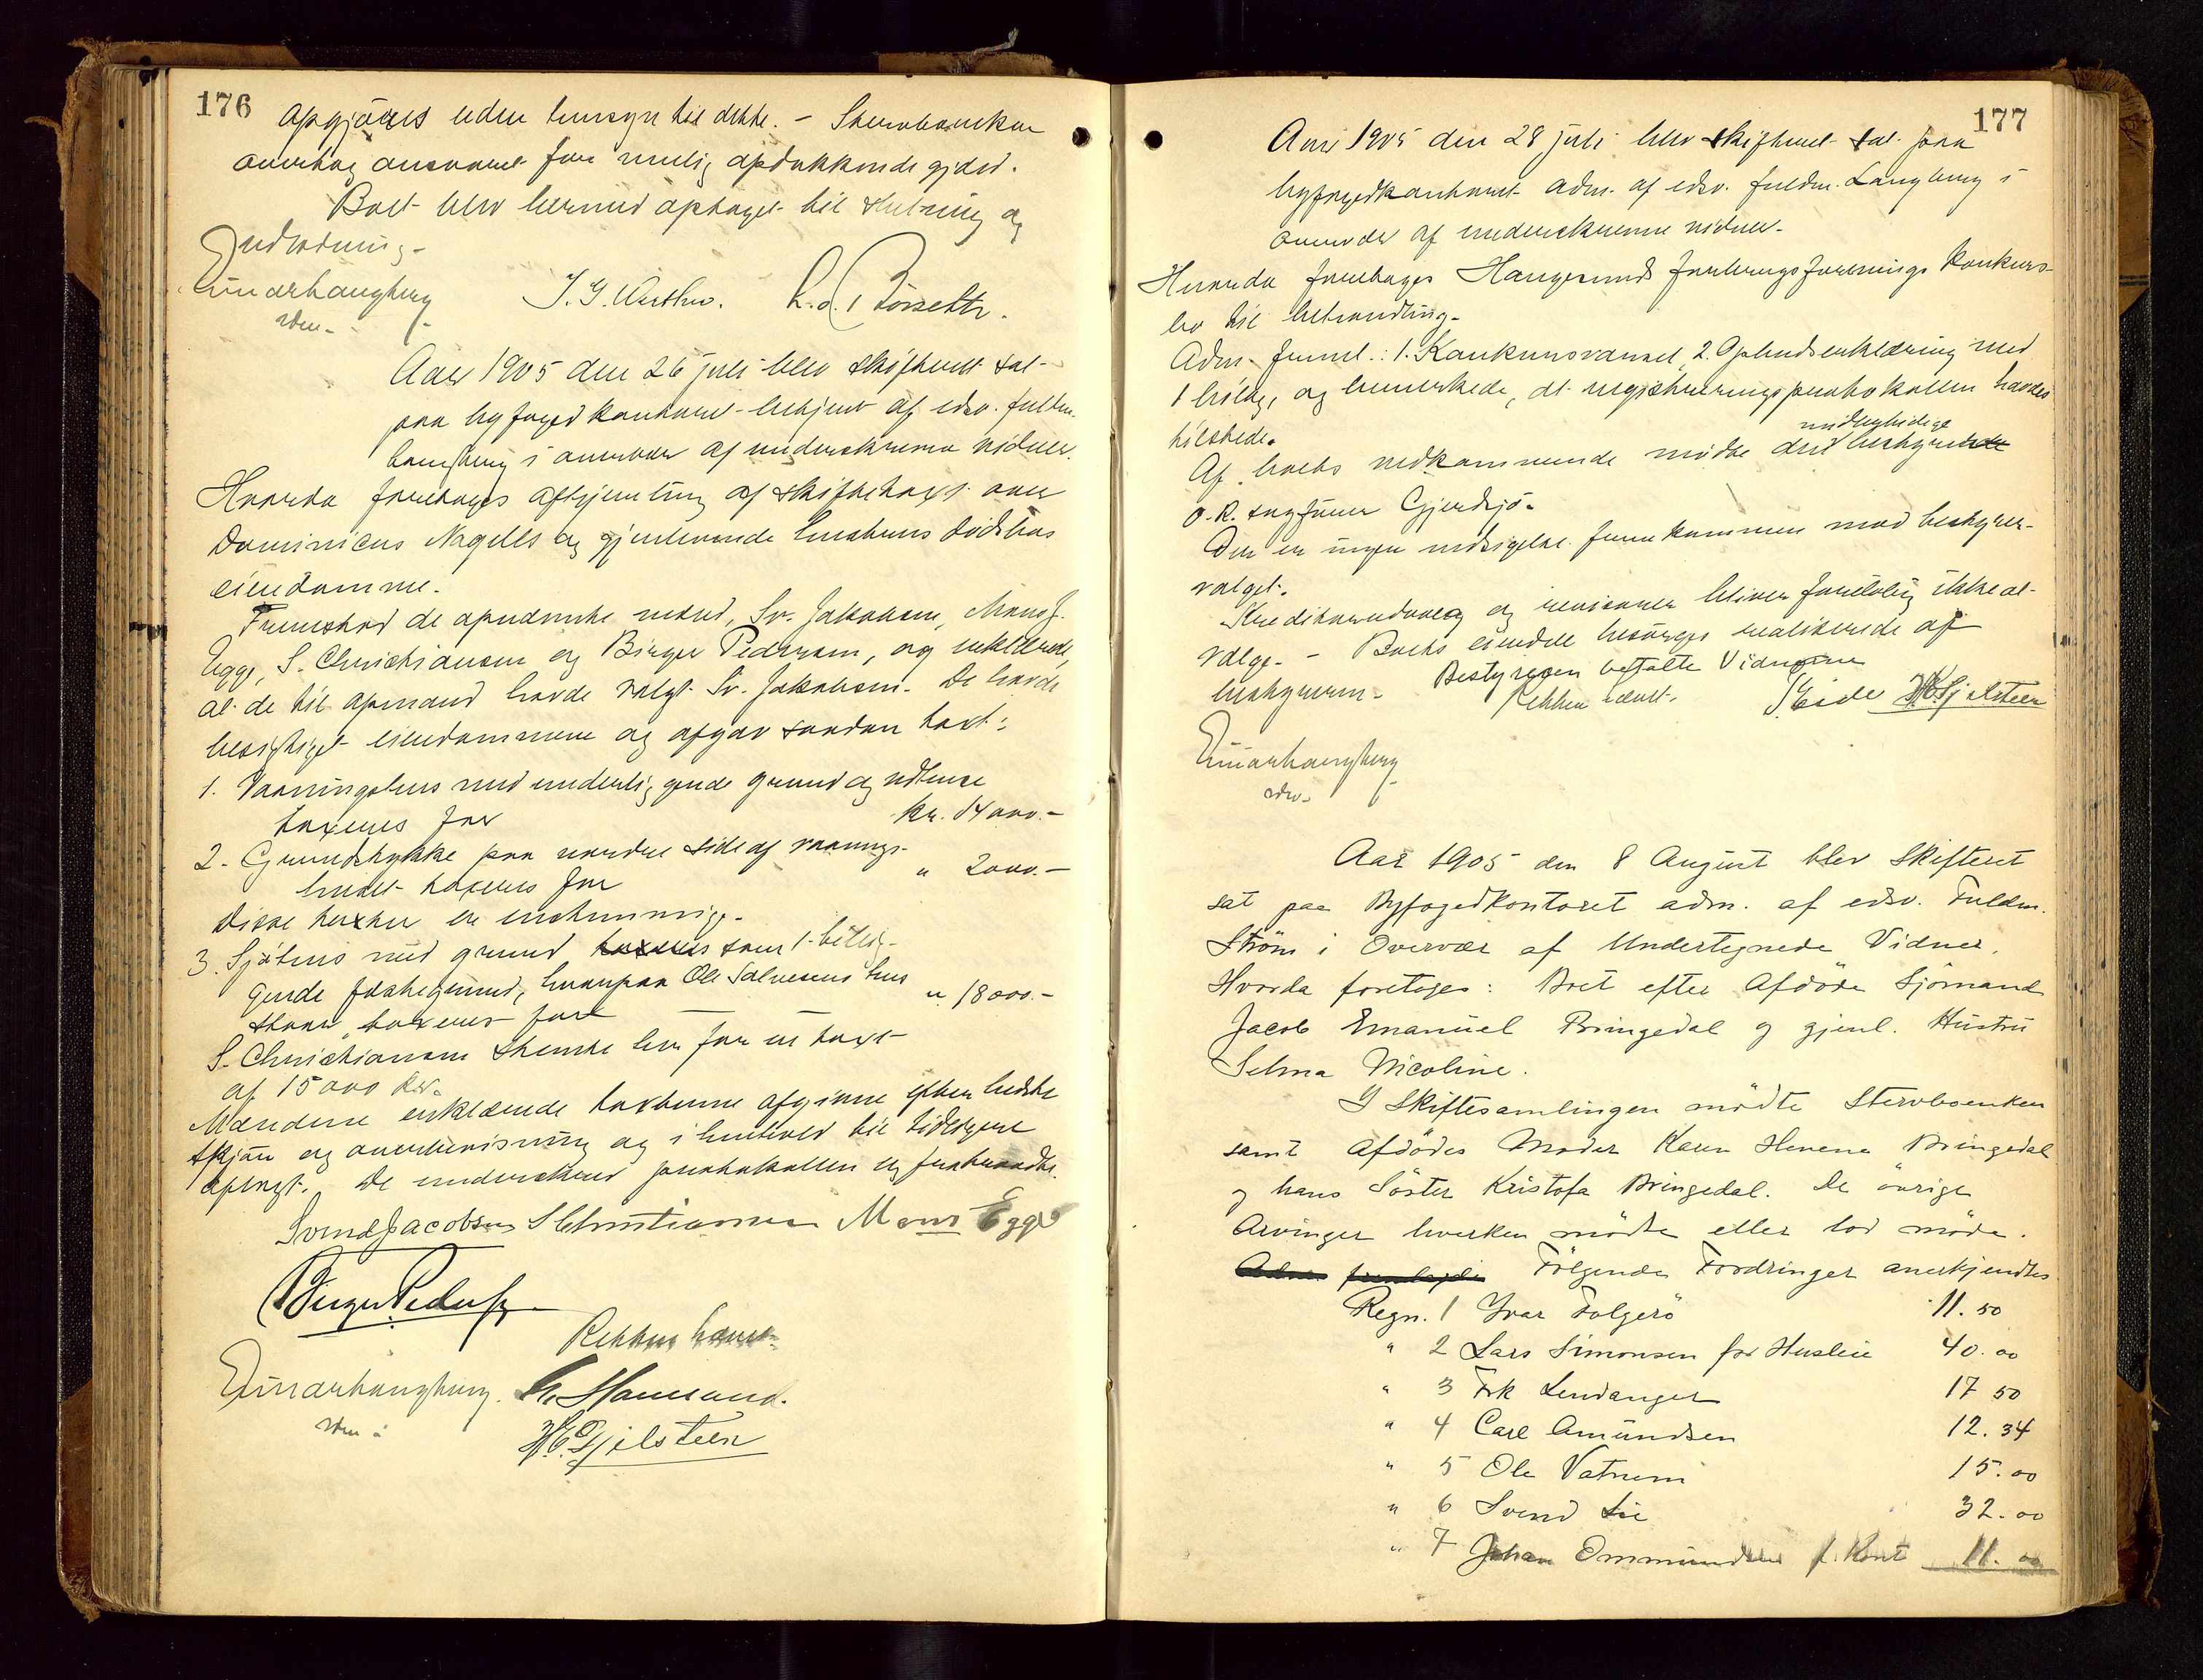 176
opgjøres uden hensyn til dette. - Stervboenken
overtog ansvaret for mulig opdukkende gjæld.
Boet blev hermed optaget til slutning og
Udlodning.
Einar Haugberg
edsv.
Aar 1905 den 26 juli blev skifteret sat
paa byfogedkontoret betjent af edsv. fuldm.
Haugberg i overvær af underskrevne vidner.
Hvorda foretoges afhjemling af skiftetaxt over
Dominicus Nagells og gjenlevende hustrues dødsbos
eiendomme.
Fremstod de opnævnte mænd, Sv. Jakobsen, Mons J.
Egge, S. Christiansen og Birger Pedersen, og erklærede,
at de til opmand havde valgt Sv. Jakobsen. De havde
besigtiget eiendommene og afgav saadan taxt:
1. Vaaningshus med underliggende grund og udhuse
taxeres for kr. 14000.-
2. Grundstykke paa nordre side af vaanings-
huset taxeres for " 2000.-
Disse taxter er enstemmige.
3. Sjøhus med grund taxeres samt 1 bilig-
gende festegrund, hvorpaa Ole Salvesens hus
staar, taxeres for " 18000.-
S. Christiansen stemte her for en taxt
af 15000 kr.
Mændene erklærede taxterne afgivne efter bedste
skjøn og overbevisning og i henhold til tidligere
aflagt. De underskrev protokollen og fratraadte.
Svend Jacobsen S Christiansen Mons Egge
Birger Pedersen
Retten hævet.
Einar Haugberg.
edsv.
H.C. Gjilsteen
177
Aar 1905 den 28 juli blev skifteret sat paa
byfogedkontoret adm. af edsv. fuldm. Haugberg i
overvær af underskrevne vidner.
Hvorda foretoges Haugesunds forbrugsforenings konkurs-
bo til behandling.
Adm. freml.: 1. Konkursvarsel, 2. Opbudserklæring med
1 bilag, og bemerkede, at registreringsprotokollen havdes
tilstede.
midlertidige
Af boets vedkommende mødte den bestyrende
O.R. sagfører Gjerdsjø.
Der er ingen indsigelse fremkommen mod bestyrer-
valget.
Kreditorudvalg og revisorer bliver foreløbig ikke at
vælge. - Boets eiendele besørges realiserede af
bestyreren. Bestyreren betalte Vidnerne
Retten hævet. Eide H.C. Gjilsteen
Einar Haugberg
edsv.
Aar 1905 den 8 August blev Skifteret
sat paa Byfogedkontoret adm. af edsv. Fuldm.
Strøm i Overvær af Undertegnede Vidner.
Hvorda foretoges: Boet efter Afdøde Sjømand
Jacob Emanuel Bringedal og gjenl. Hustru
Selma Nicoline.
I Skiftesamlingen mødte Stervboenken
samt Afdødes Moder Karen Helene Bringedal
og hans Søster Kristofa Bringedal. De øvrige
Arvinger hverken mødte eller lod møde.
Adm. fremlagde Følgende Fordringer anerkjendtes
Regn. 1 Ivar Folgerø 11.50
" 2 Lars Simonsen for Husleie 40.00
" 3 Frk Lendanger 17 50
" 4 Carl Amundsen 12.34
" 5 Ole Vatnem 15.00
" 6 Svend Lie 32.00
" 7 Johan Ommundsen f. Kont 11.00